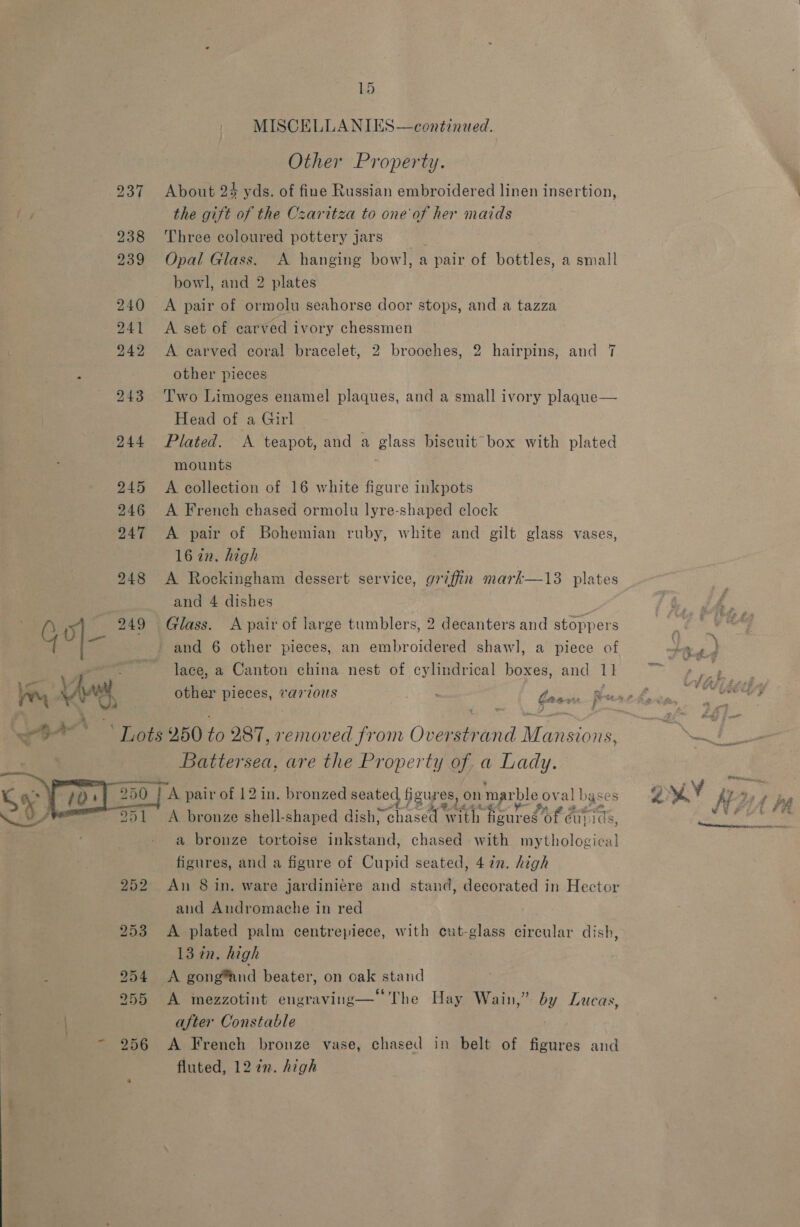 15
MISCELLANIES—continued.
Other Property.
237 About 2½ yds. of fine Russian embroidered linen insertion,
the gift of the Czaritza to one of her maids
238 Three coloured pottery jars
239 Opal Glass. A hanging bowl, a pair of bottles, a small
bowl, and 2 plates
240 A pair of ormolu seahorse door stops, and a tazza
241 A set of carved ivory chessmen
242 A carved coral bracelet, 2 brooches, 2 hairpins, and 7
other pieces
243 Two Limoges enamel plaques, and a small ivory plaque—
Head of a Girl
244 Plated. A teapot, and a glass biscuit box with plated
mounts
245 A collection of 16 white figure inkpots
246 A French chased ormolu lyre-shaped clock
247 A pair of Bohemian ruby, white and gilt glass vases,
16 in. high
248 A Rockingham dessert service, griffin mark—13 plates
and 4 dishes
249 Glass. A pair of large tumblers, 2 decanters and stoppers
and 6 other pieces, an embroidered shawl, a piece of
lace, a Canton china nest of cylindrical boxes, and 11
other pieces, various
Lots 250 to 287, removed from Overstrand Mansions,
Battersea, are the Property of a Lady.
250 A pair of 12 in. bronzed seated figures, on marble oval bases
251 A bronze shell-shaped dish, chased with figures of cupids,
a bronze tortoise inkstand, chased with mythological
figures, and a figure of Cupid seated, 4 in. high
252 An 8 in. ware jardinière and stand, decorated in Hector
and Andromache in red
253 A plated palm centrepiece, with cut-glass circular dish,
13 in. high
254 A gong and beater, on oak stand
255 A mezzotint engraving—“The Hay Wain,” by Lucas,
after Constable
256 A French bronze vase, chased in belt of figures and
fluted, 12 in. high